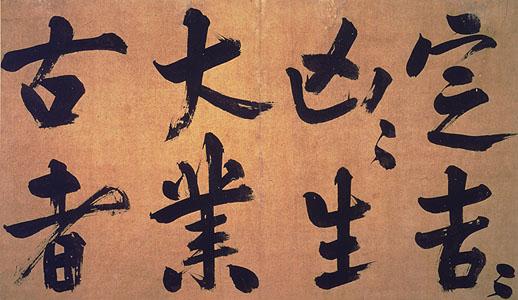 定吉〻
凶〻生
大業
古者